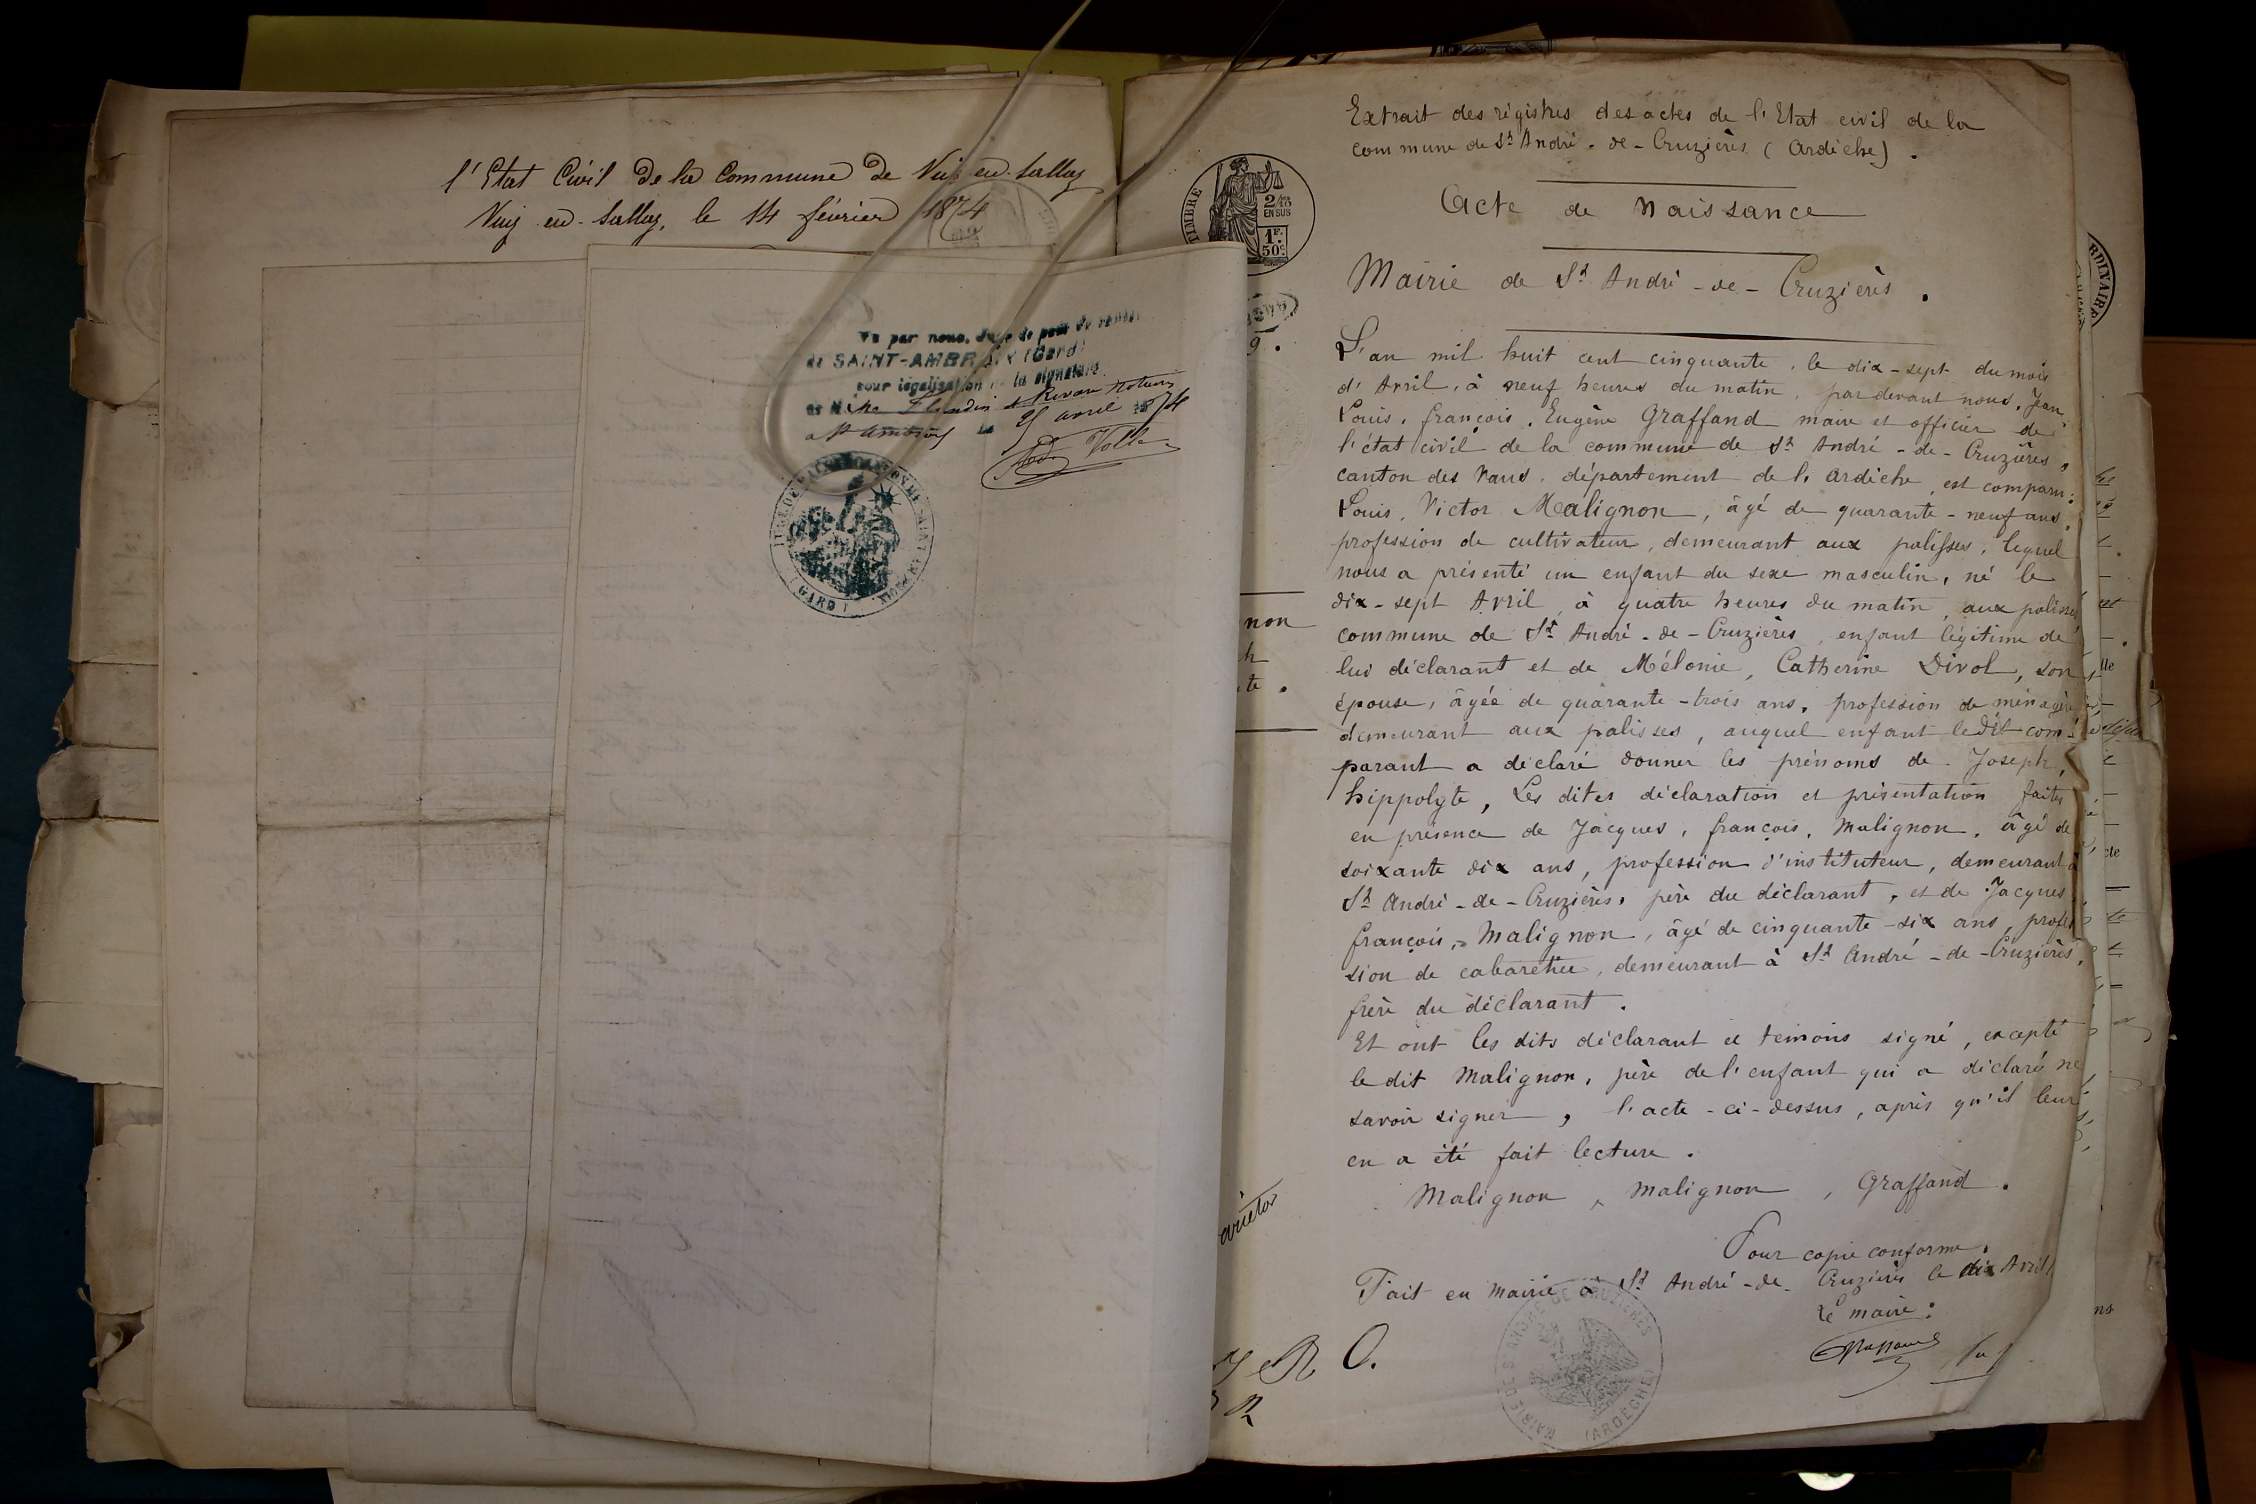 l'Etat Civil de la Commune de
le 14 février 1874
Vu par nous, Juge de paix du canton
de SAINT-AMBROIX (Gard)
pour légalisation de la signature
de M
avril 1874
a St Ambroix
JUGE DE PAIX
(GARD)
TIMBRE
2/10
EN SUS
1F.
50c.
9.
non
h
te.
Extrait des régistres des actes de l'Etat civil de la
commune de St André-de-Cruzières (Ardèche).
Acte de Naissance
Mairie de St André-de-Cruzières.
L'an mil huit cent cinquante, le dix-sept du mois
d'Avril, à neuf heures du matin, pardevant nous, Jean,
Louis, françois, Eugène Graffand maire et officier de
l'état civil de la commune de St André-de-Cruzières,
canton des Vans, département de l'Ardèche, est comparu:
Louis, Victor Malignon, âgé de quarante-neuf ans,
profession de cultivateur, demeurant aux palisses, lequel
nous a présenté un enfant du sexe masculin, né le
dix-sept Avril, à quatre heures du matin, aux palisses
commune de St André-de-Cruzières, enfant légitime de
lui déclarant et de Mélonie, Catherine Divol, son
épouse, âgée de quarante-trois ans, profession de ménagère
demeurant aux palisses, auquel enfant ledit com-
parant a déclaré donner les prénoms de Joseph,
hippolyte, Les dites déclaration et présentation faites
en présence de Jacques, françois, Malignon, âgé de
soixante dix ans, profession d'instituteur, demeurant à
St André-de-Cruzières, père du déclarant, et de Jacques
françois, Malignon, âgé de cinquante-six ans, profes
sion de cabaretier, demeurant à St André-de-Cruzières,
frère du déclarant.
Et ont les dits déclarant et témoins signé, excepté
le dit Malignon, père de l'enfant qui a déclaré ne
savoir signer, l'acte-ci-dessus, après qu'il leur
en a été fait lecture.
Malignon, Malignon, Graffand.
Pour copie conforme.
Fait en mairie à St André-de-Cruzières le dix Avril
Le maire:
MAIRIE DE S ANDRE DE CRUZIERES
(ARDECHE)